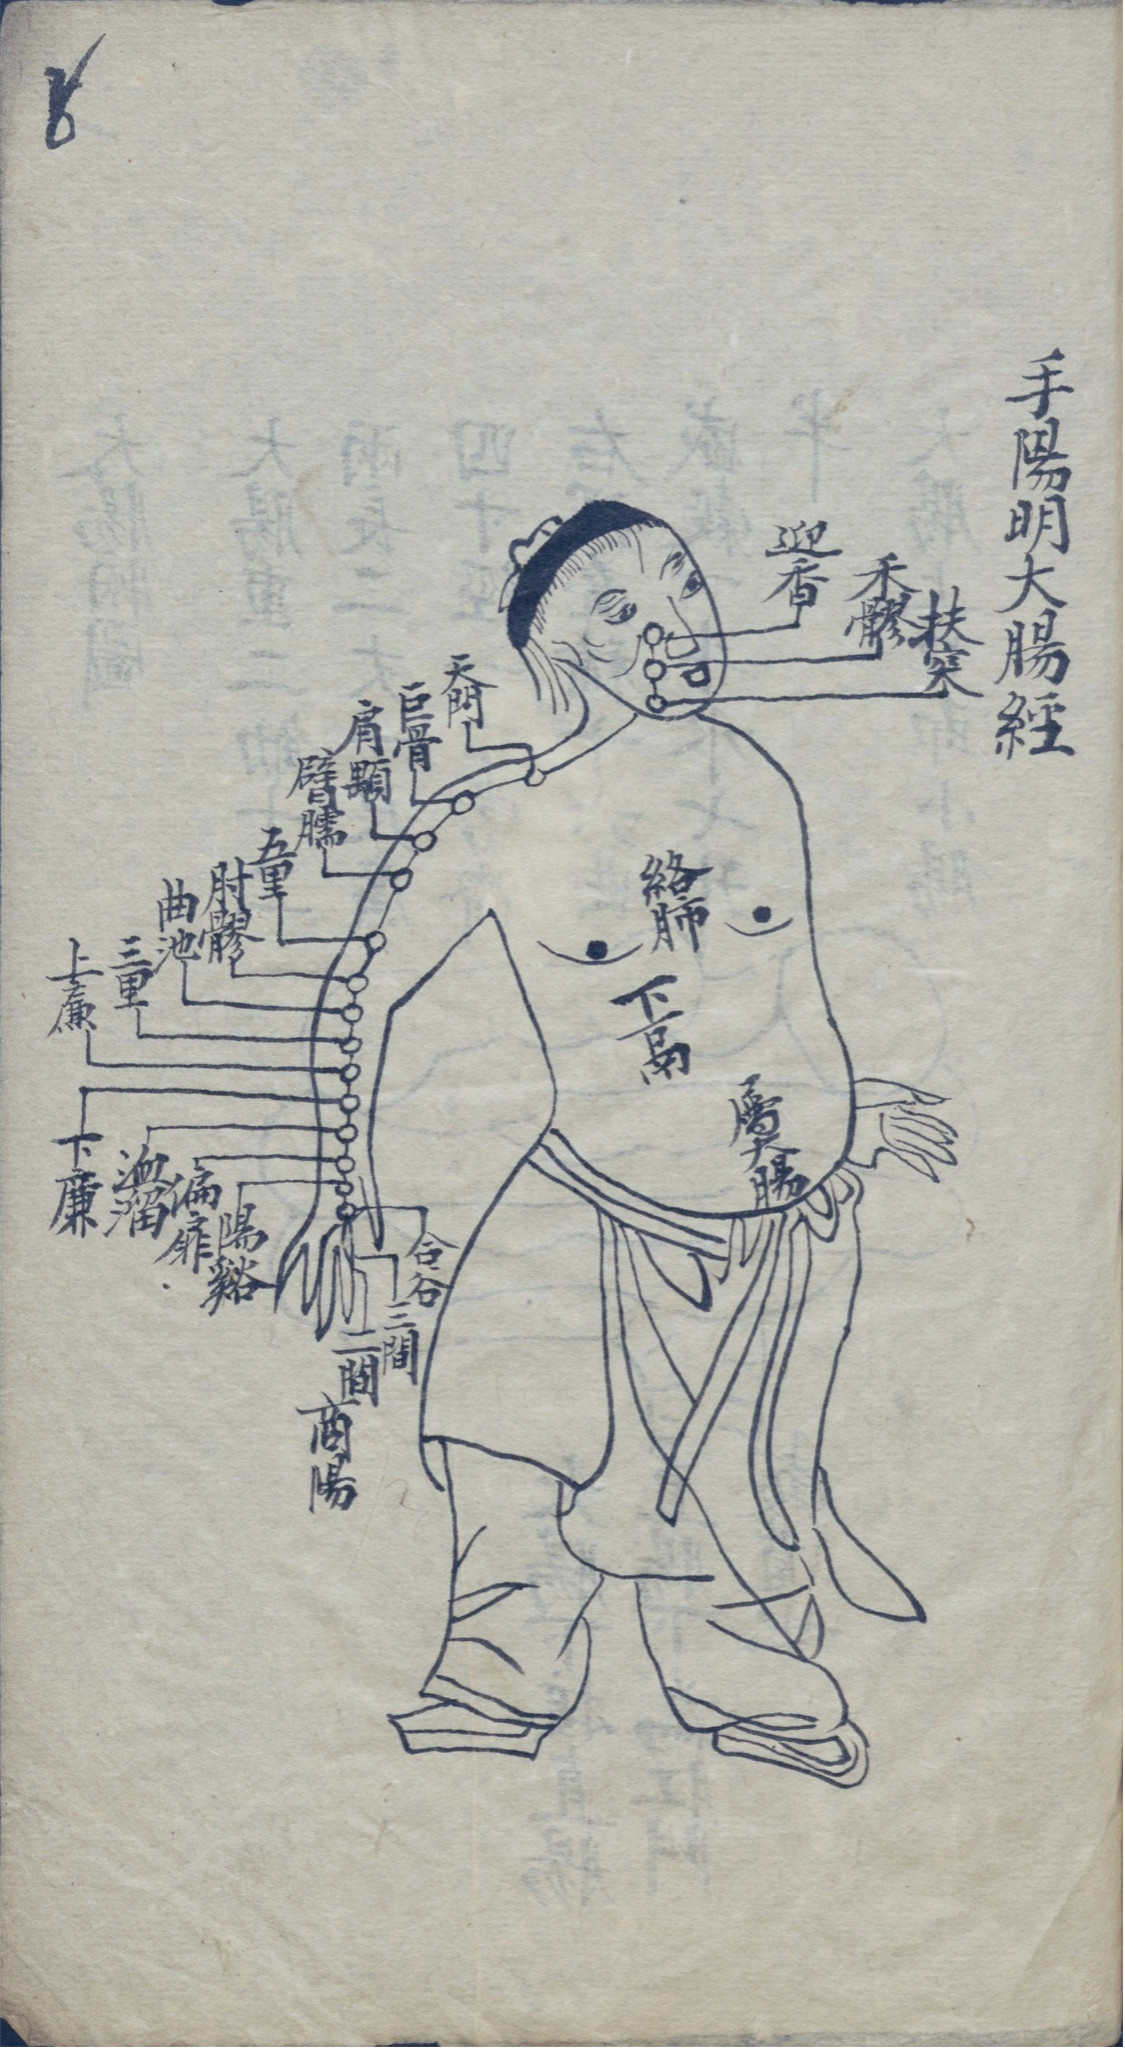 手陽明大腸經
扶突
禾髎
迎香
天門
巨骨
肩顒
臂臑
五里
肘髎
曲池
三里
上廉
下廉
溫留
偏
陽谿
合谷
三間
二間
商陽
絡肺
下鬲
屬大腸